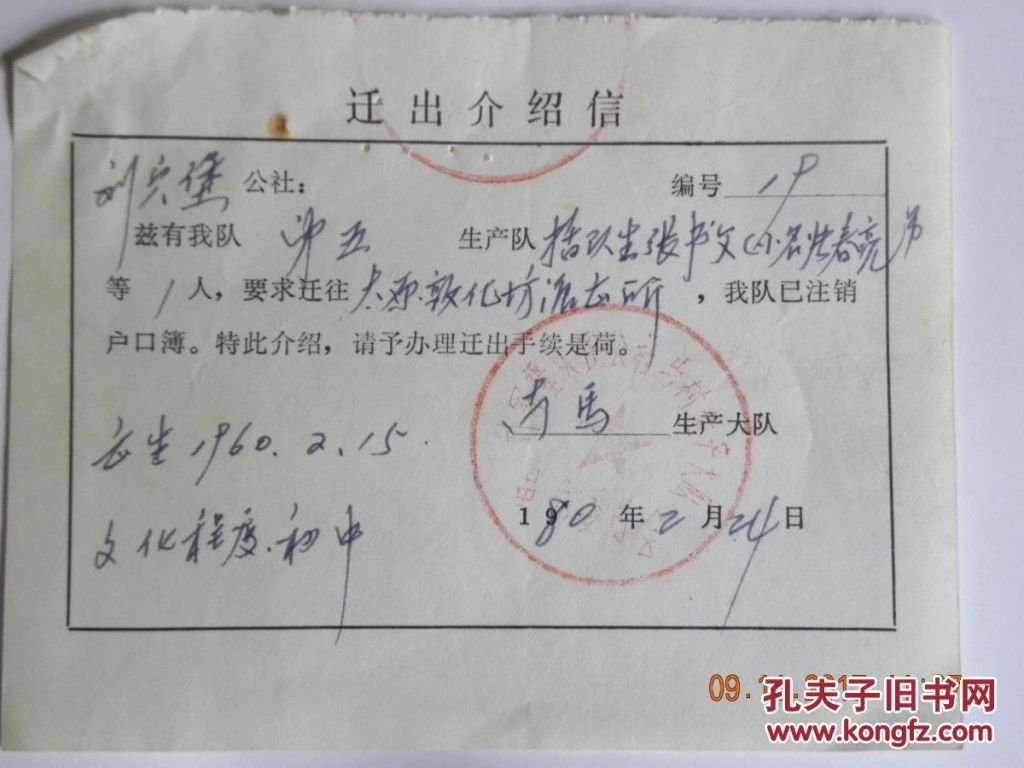 迁出介绍信
公社： 编号 19
兹有我队 第五 生产队 张书文
等 1 人，要求迁往 太原敦化坊派出所 ，我队已注销
户口簿。特此介绍，请予办理迁出手续是荷。
马 生产大队
出生1960.2.15.
1980年2月24日
文化程度.初中
孔夫子旧书网
www.kongfz.com